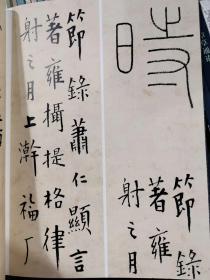 時
節錄
著雍
射之月
節錄蕭仁顯言
著雍攝提格律
射之月上澣福厂